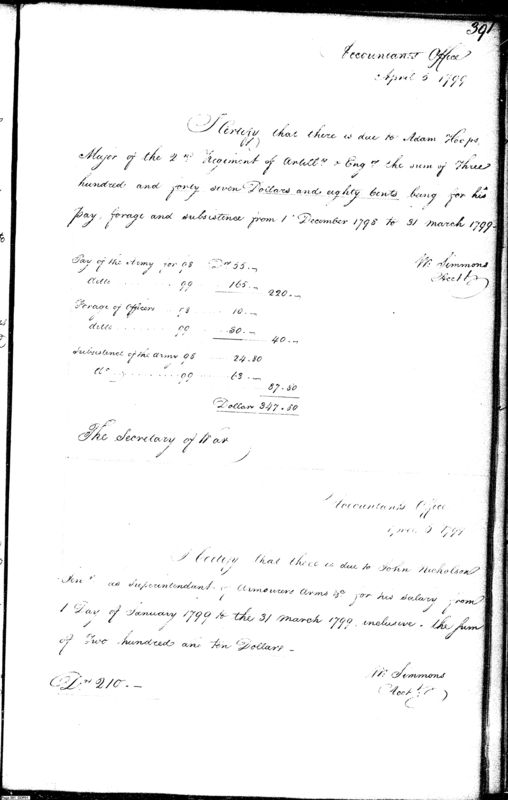 391
Accountants Office
April 5 1799
I Certify that there is due to Adam Hoops
Major of the 2nd Regiment of Artillry & Engrs the sum of Three
hundred and forty seven Dollars and eighty Cents being for his
Pay forage and subsistence from 1st December 1798 to 31 march 1799-
Wm Simmons
Acctt
Pay of the Army for 98 Drs 55.-
ditto 99 165.- 220.-
Forage of Officers 98 10.-
ditto 99 30.- 40.-
Subsistence of the Army 98 24.80
Do 99 63.- 87.80
Dollars 347.80
The Secretary of War
Accountants Office
April 5 1799
I Certify that there is due to John Nicholson
Senr as Superintendant of Armourers Arms &c for his salary from
1 Day of January 1799 to the 31 march 1799 inclusive - the sum
of Two hundred and ten Dollars -
Drs 210.-
Wm Simmons
Acctt